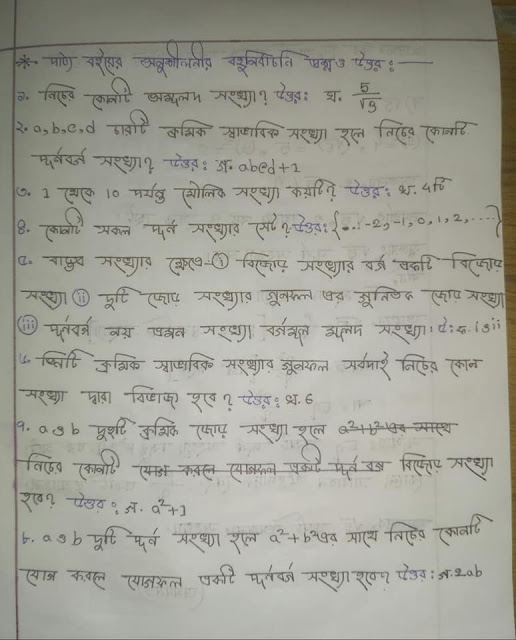 * পাঠ্য বইয়ের অনুশীলনীর বহুনির্বাচনি প্রশ্ন ও উত্তর:—
১. নিচের কোনটি অমূলদ সংখ্যা? উত্তর: খ. 5/√3
২. a, b, c, d চারটি ক্রমিক স্বাভাবিক সংখ্যা হলে নিচের কোনটি
পূর্ণবর্গ সংখ্যা? উত্তর: গ. abcd+1
৩. 1 থেকে 10 পর্যন্ত মৌলিক সংখ্যা কয়টি? উত্তর: খ. 4টি
৪. কোনটি সকল পূর্ণ সংখ্যার সেট? উত্তর: {...-2, -1, 0, 1, 2, ...}
৫. বাস্তব সংখ্যার ক্ষেত্রে- (i) বিজোড় সংখ্যার বর্গ একটি বিজোড়
সংখ্যা (ii) দুটি জোড় সংখ্যার গুনফল এর গুনিতক জোড় সংখ্যা
(iii) পূর্ণবর্গ নয় এমন সংখ্যা বর্গমূল মূলদ সংখ্যা। উ: ক. i ও ii
৬. তিনটি ক্রমিক স্বাভাবিক সংখ্যার গুনফল সর্বদাই নিচের কোন
সংখ্যা দ্বারা বিভাজ্য হবে? উত্তর: খ. 6
৭. a ও b দুইটি ক্রমিক জোড় সংখ্যা হলে a²+b² এর সাথে
নিচের কোনটি যোগ করলে যোগফল একটি পূর্ণ বর্গ বিজোড় সংখ্যা
হবে? উত্তর: গ. a²+1
৮. a ও b দুটি পূর্ণ সংখ্যা হলে a²+b² এর সাথে নিচের কোনটি
যোগ করলে যোগফল একটি পূর্ণবর্গ সংখ্যা হবে? উত্তর: গ. 2ab